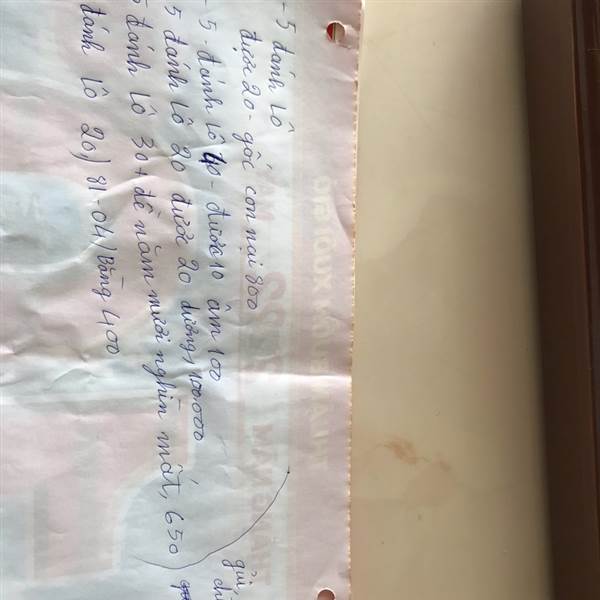 - 5 đánh lô
được 20 - gốc con nai 800
- 5 - đánh lô 40 - được 10 âm 100
5 đánh lô 20 được 20 dương, 100.000
đánh lô 30 + đề năm mươi nghìn mất, 650
đánh lô 20) 81.04) Bằng 400
gửi